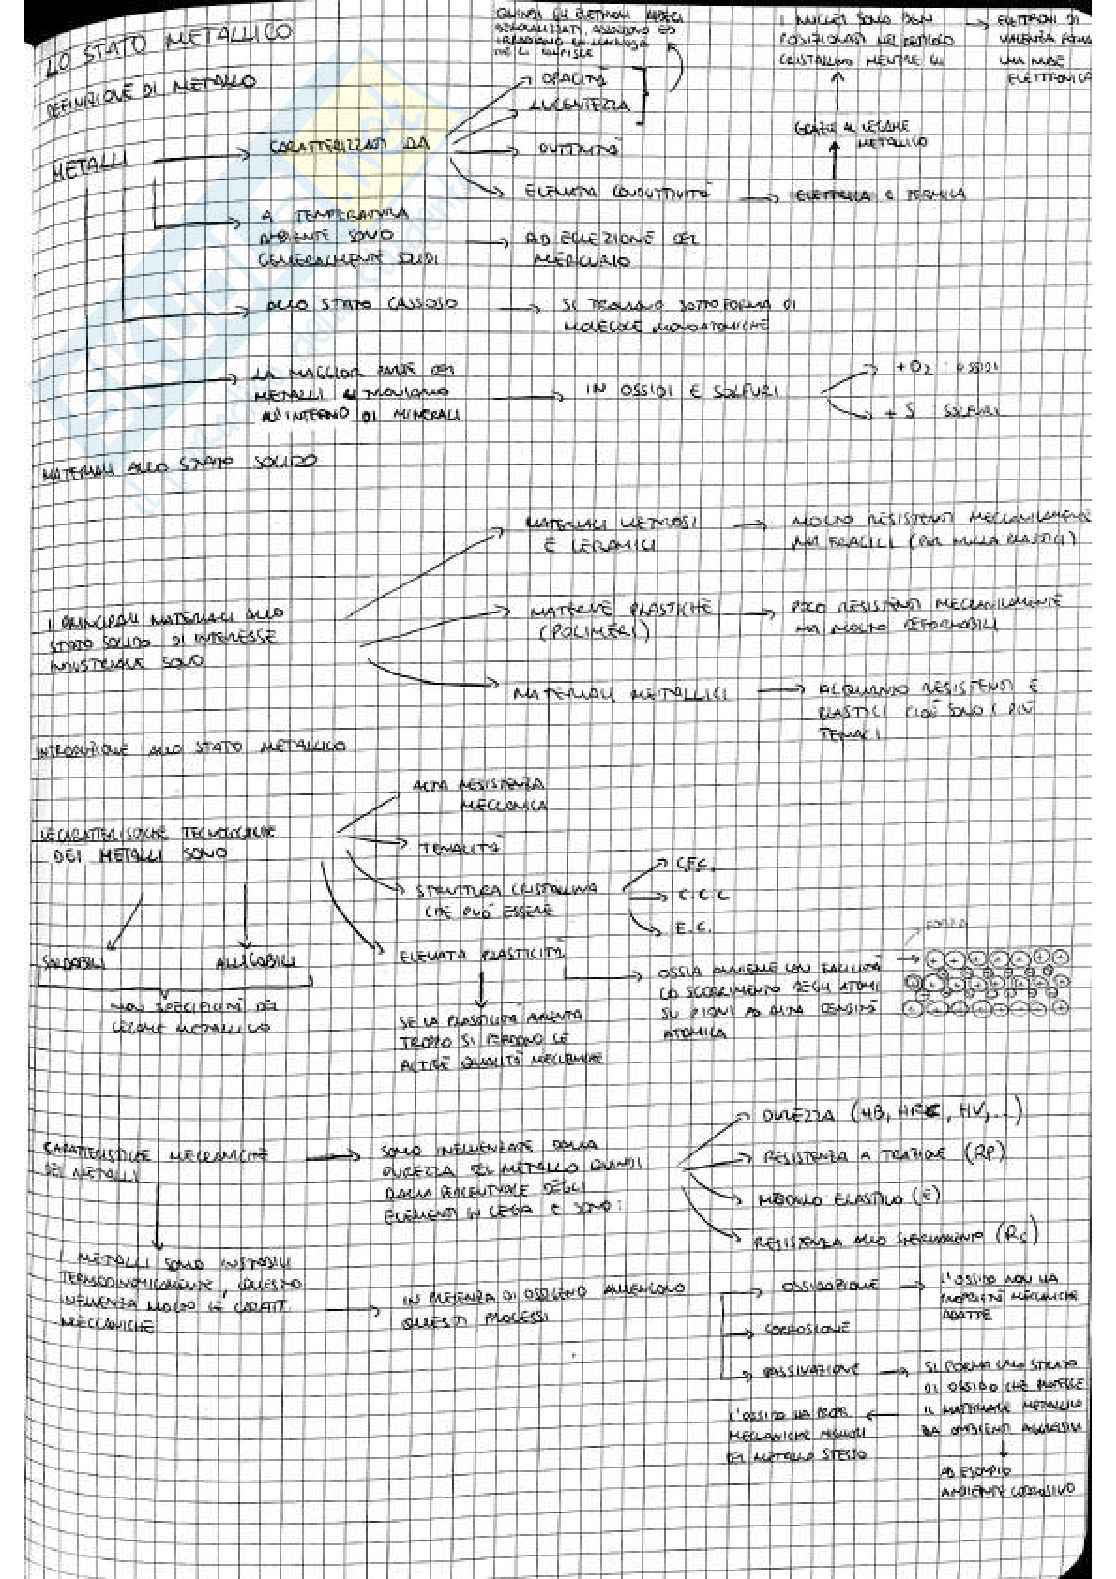 LO STATO METALLICO
DEFINIZIONE DI METALLO
METALLI
CARATTERIZZATI DA
QUINDI GLI ELETTRONI
DELOCALIZZATI, ASSORBONO ED
IRRADIANO
OPACITÀ
LUCENTEZZA
DUTTILITÀ
ELEVATA CONDUTTIVITÀ
ELETTRICA E TERMICA
GRAZIE AL LEGAME
METALLICO
I NUCLEI SONO BEN
POSIZIONATI NEL RETICOLO
CRISTALLINO MENTRE GLI
ELETTRONI DI
VALENZA
UNA NUBE
ELETTRONICA
A TEMPERATURA
AMBIENTE SONO
GENERALMENTE SOLIDI
AD ECCEZIONE DEL
MERCURIO
ALLO STATO GASSOSO
SI TROVANO SOTTO FORMA DI
MOLECOLE MONOATOMICHE
LA MAGGIOR PARTE DEI
METALLI SI TROVANO
ALL'INTERNO DI MINERALI
IN OSSIDI E SOLFURI
+ O2 : OSSIDI
+ S : SOLFURI
MATERIALI ALLO STATO SOLIDO
I PRINCIPALI MATERIALI ALLO
STATO SOLIDO DI INTERESSE
INDUSTRIALE SONO
MATERIALI VETROSI
E CERAMICI
MOLTO RESISTENTI MECCANICAMENTE
MA FRAGILI (PER NULLA PLASTICI)
MATERIE PLASTICHE
(POLIMERI)
POCO RESISTENTI MECCANICAMENTE
MA MOLTO DEFORMABILI
MATERIALI METALLICI
ALQUANTO RESISTENTI E
PLASTICI CIOÈ SONO I PIÙ
TENACI
INTRODUZIONE ALLO STATO METALLICO
LE CARATTERISTICHE TECNOLOGICHE
DEI METALLI SONO
ALTA RESISTENZA
MECCANICA
TENACITÀ
STRUTTURA CRISTALLINA
CHE PUÒ ESSERE
C.F.C.
C.C.C.
E.C.
ELEVATA PLASTICITÀ
OSSIA AVVIENE CON FACILITÀ
LO SCORRIMENTO DEGLI ATOMI
SU PIANI AD ALTA DENSITÀ
ATOMICA
FORZA
SE LA PLASTICITÀ AUMENTA
TROPPO SI PERDONO LE
ALTRE QUALITÀ MECCANICHE
SALDABILI
ALLIGABILI
NON SPECIFICITÀ DEL
LEGAME METALLICO
CARATTERISTICHE MECCANICHE
DEI METALLI
SONO INFLUENZATE DALLA
PUREZZA DEL METALLO QUINDI
DALLA PERCENTUALE DEGLI
ELEMENTI IN LEGA E SONO:
DUREZZA (HB, HRC, HV,...)
RESISTENZA A TRAZIONE (RP)
MODULO ELASTICO (E)
RESISTENZA ALLO SNERVAMENTO (RS)
I METALLI SONO INSTABILI
TERMODINAMICAMENTE, QUESTO
INFLUENZA MOLTO LE CARATT.
MECCANICHE
IN PRESENZA DI OSSIGENO AVVENGONO
QUESTI PROCESSI
OSSIDAZIONE
L'OSSIDO NON HA
PROPRIETÀ MECCANICHE
ADATTE
CORROSIONE
PASSIVAZIONE
SI FORMA UNO STRATO
DI OSSIDO CHE PROTEGGE
IL MATERIALE METALLICO
DA AMBIENTI AGGRESSIVI
L'OSSIDO HA PROP.
MECCANICHE MIGLIORI
DEL METALLO STESSO
AD ESEMPIO
AMBIENTE CORROSIVO